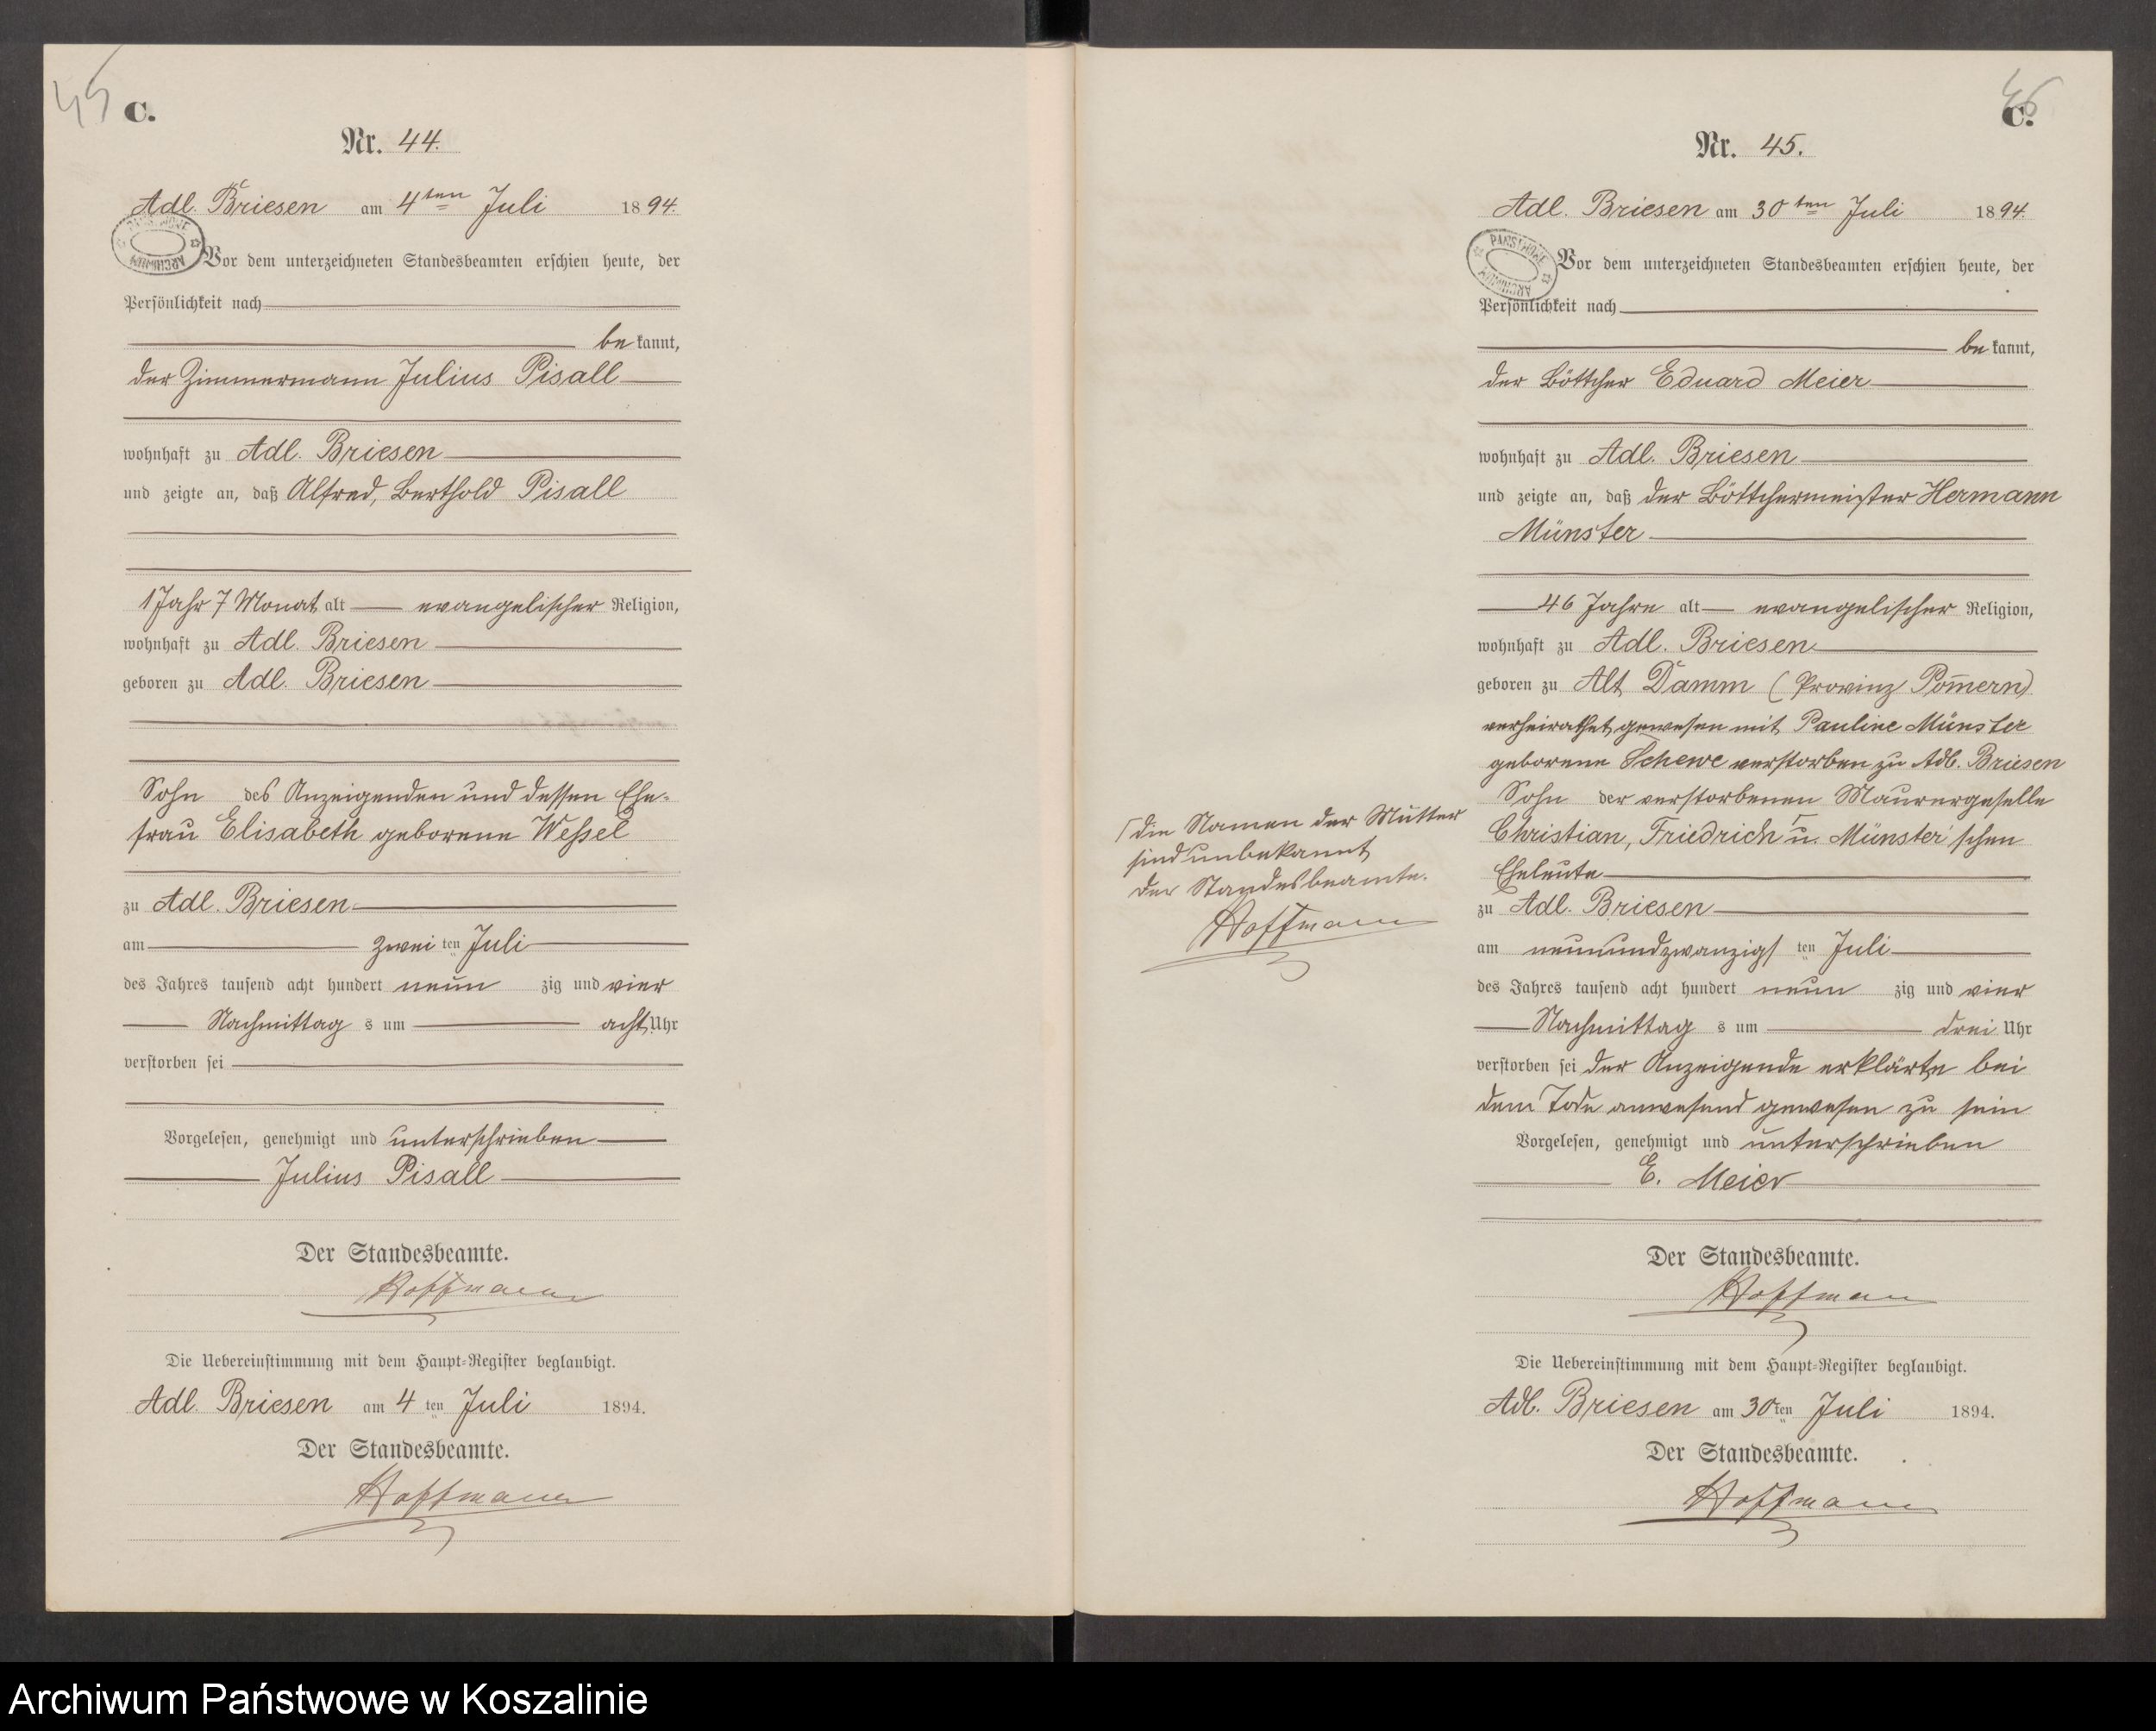 45
C.
Nr. 44.
Adl. Briesen am 4ten Juli 1894.
Vor dem unterzeichneten Standesbeamten erschien heute, der
Persönlichkeit nach
bekannt,
der Zimmermann Julius Pisall
wohnhaft zu Adl. Briesen
und zeigte an, daß Alfred, Berthold Pisall
1 Jahr 7 Monat alt evangelischer Religion,
wohnhaft zu Adl. Briesen
geboren zu Adl. Briesen
Sohn des Anzeigenden und dessen Ehe-
frau Elisabeth geborene Wessel
zu Adl. Briesen
am zweiten Juli
des Jahres tausend acht hundert neunzig und vier
Nachmittags um acht Uhr
verstorben sei
Vorgelesen, genehmigt und unterschrieben
Julius Pisall
Der Standesbeamte.
Hoffmann
Die Uebereinstimmung mit dem Haupt-Register beglaubigt.
Adl. Briesen am 4ten Juli 1894.
Der Standesbeamte.
Hoffmann
46
C.
Nr. 45.
Adl. Briesen am 30ten Juli 1894.
PAŃSTWOWE ARCHIWUM
Vor dem unterzeichneten Standesbeamten erschien heute, der
Persönlichkeit nach
bekannt,
der Böttcher Eduard Meier
wohnhaft zu Adl. Briesen
und zeigte an, daß der Böttchermeister Hermann
Münster
46 Jahre alt evangelischer Religion,
wohnhaft zu Adl. Briesen
geboren zu Alt Damm (Provinz Pom̅ern)
verheirathet gewesen mit Pauline Münster
geborene Schewe verstorben zu Adl. Briesen
Sohn der verstorbenen Maurergeselle
Christian, Friedrich ⌈ u. Münster'schen
Eheleute
⌈ die Namen der Mutter
sind unbekannt
Der Standesbeamte.
Hoffmann
zu Adl. Briesen
am neunundzwanzigsten Juli
des Jahres tausend acht hundert neunzig und vier
Nachmittags um drei Uhr
verstorben sei der Anzeigende erklärte bei
dem Tode anwesend gewesen zu sein
Vorgelesen, genehmigt und unterschrieben
E. Meier
Der Standesbeamte.
Hoffmann
Die Uebereinstimmung mit dem Haupt-Register beglaubigt.
Adl. Briesen am 30ten Juli 1894.
Der Standesbeamte.
Hoffmann
Archiwum Państwowe w Koszalinie